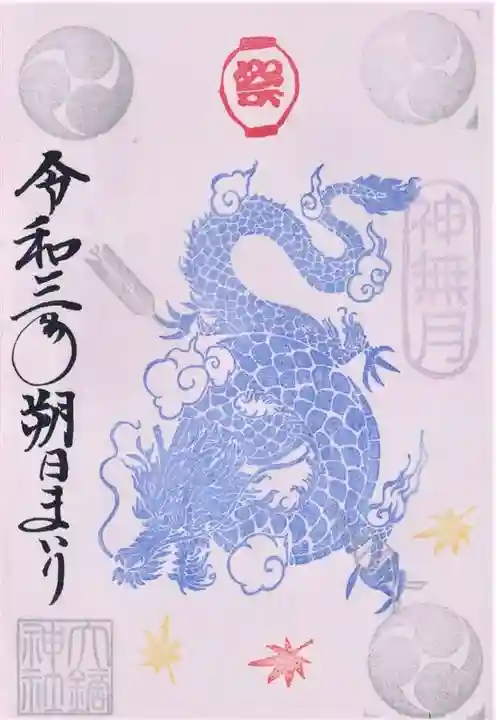 祭
神無月
令和三年〇朔日まいり
大鏑
神社